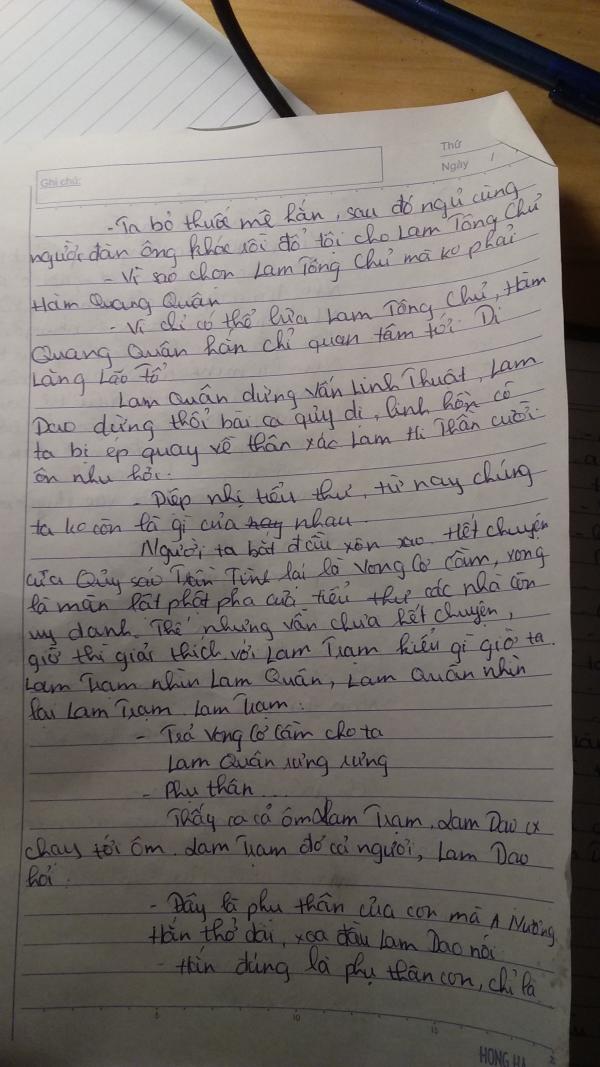 Ghi chú:
Thứ
Ngày
- Ta bỏ thuốc mê hắn, sau đó ngủ cùng
người đàn ông khác rồi đổ tội cho Lam Tông Chủ
- Vì sao chọn Lam Tông Chủ mà ko phải
Hàm Quang Quân
- Vì chỉ có thể lừa Lam Tông Chủ, Hàm
Quang Quân hắn chỉ quan tâm tới Di
Lăng Lão Tổ
Lam Quân dừng Vấn Linh Thuật, Lam
Dao dừng thổi bài ca quỷ dị, linh hồn cô
ta bị ép quay về thân xác Lam Hi Thần cười
ôn nhu hỏi:
- Diếp nhị tiểu thư, từ nay chúng
ta ko còn là gì của nhau.
Người ta bắt đầu xôn xao. Hết chuyện
của Quỷ sáo Trần Tình lại là Vong Cơ Cầm, xong
là màn lất phất pha cưới tiểu thư các nhà còn
uy danh. Thế nhưng vẫn chưa hết chuyện,
giờ thì giải thích với Lam Trạm kiểu gì giờ ta.
Lam Trạm nhìn Lam Quân, Lam Quân nhìn
lại Lam Trạm. Lam Trạm:
- Trả Vong Cơ Cầm cho ta
Lam Quân rưng rưng
- Phụ thân...
Thấy ca ca ôm Lam Trạm, Lam Dao cx
chạy tới ôm. Lam Trạm đơ cả người, Lam Dao
hỏi:
- Đây là phụ thân của con mà A Nương
Hắn thở dài, xoa đầu Lam Dao nói
- Hắn đúng là phụ thân con, chỉ là
5
10
15
HONG HA